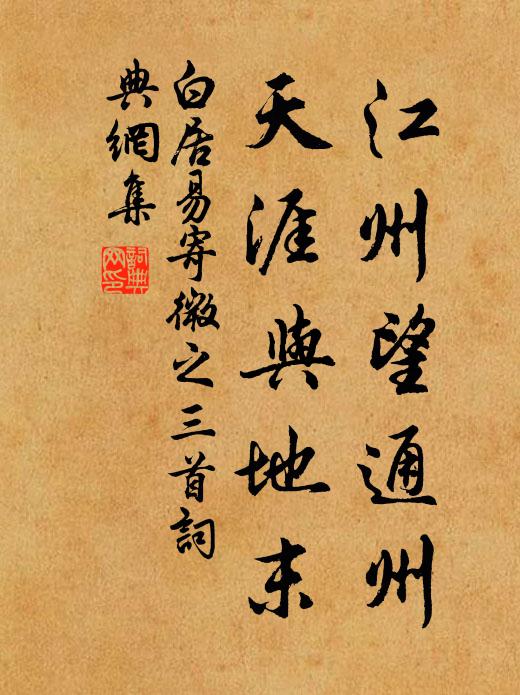 江州望通州
天涯與地末
白居易寄微之三首詞
典網集
詞典網印